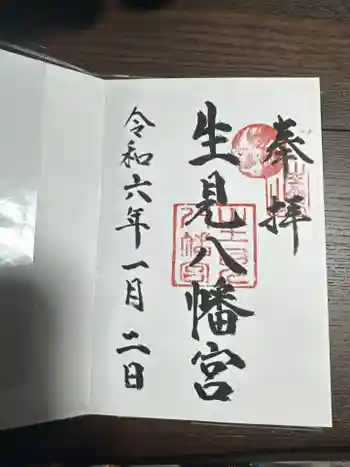 奉拝
生見八幡宮
令和六年一月二日